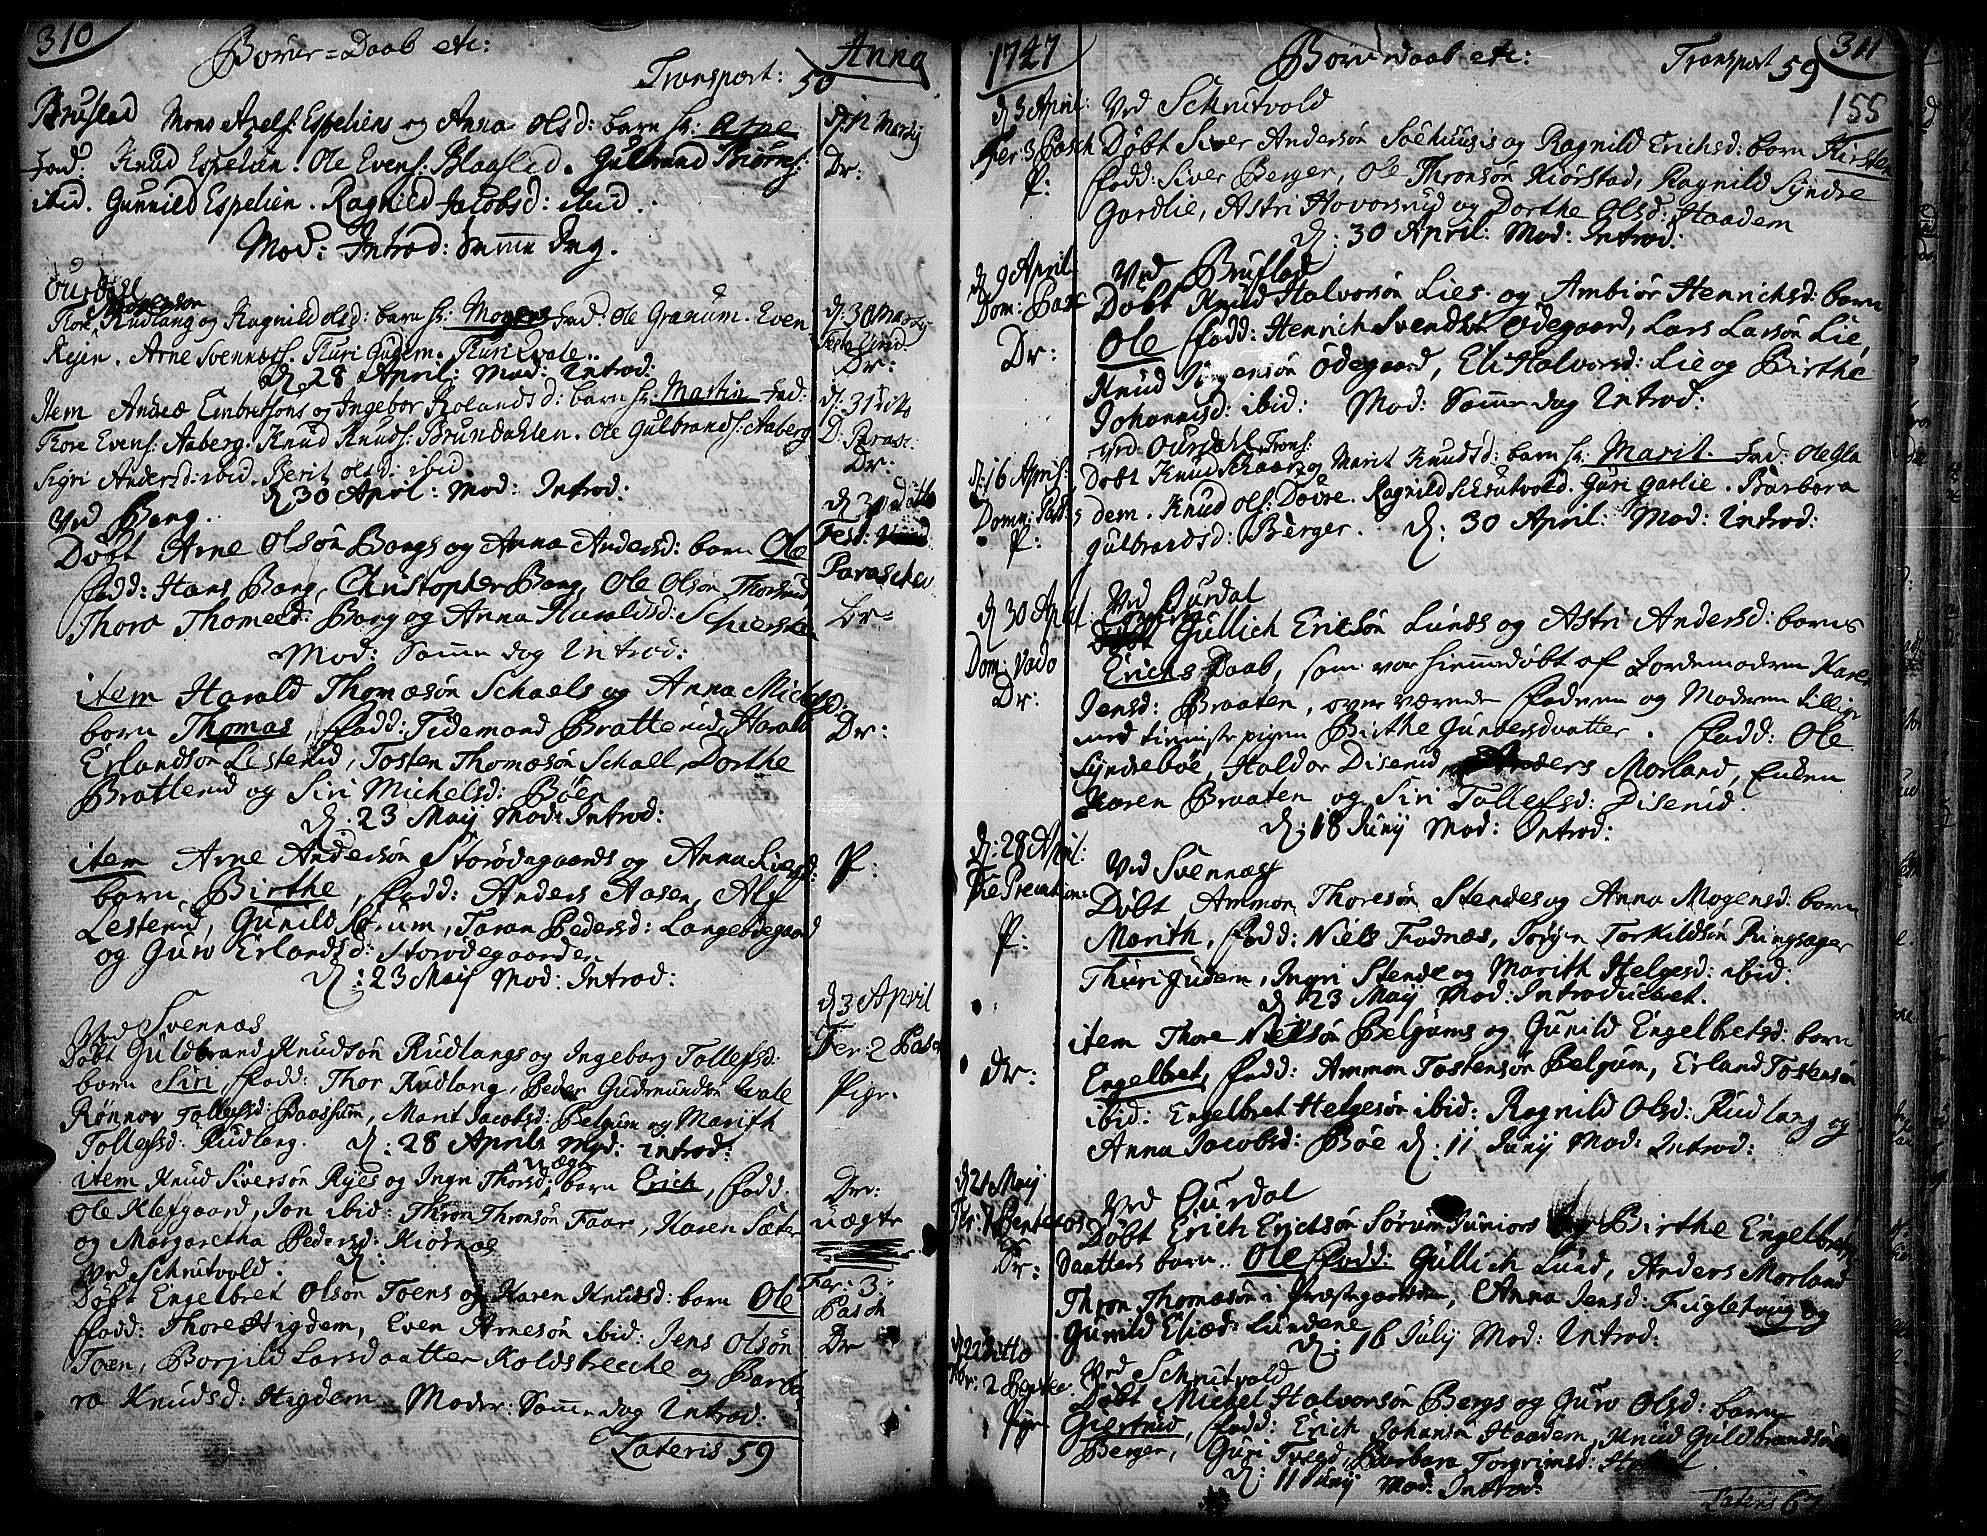 310 Børne=Daab etc: Anno
Transport: 50
Bruflad Mons Axels: Espeliens og Anna Olsd: barn k: Arne
Fad: Knud Espelien. Ole Evens: Blaaflad. Gulbrand Biørns:
ibid. Gunnild Espelien. Ragnild Jacobsd: ibid.
Mod: Introd: Samme Dag.
Ourdal
Thore Rudlang og Ragnild Olsd: barn k: Mogens Fad: Ole Granum. Even
Rejen. Arne Svennæss. Thuri Gudem. Thuri Qvale.
d. 28 April: Mod: Introd:
Item Anders Embretsons og Ingebor Rolandsd: barn k: Martin Fad:
Thore Evens: Aaberg. Knud Knuds: Brundahlen. Ole Gulbrands: Aaberg
Sigri Andersd: ibid. Berit Olsd: ibid
d. 30 April: Mod: Introd:
Ved Bang.
Døbt Arne Olsøn Bangs og Anna Andersd: barn Ole
Fadd: Hans Bang, Christopher Bang, Ole Olsøn Thorsrud
Thora Thomæd: Bang og Anna Haraldsd:
Mod: Samme dag Introd:
item Harald Thomæsøn Schaels og Anna Michelsd:
barn Thomas, Fadd: Tidemand Bratterud, Harald
Erlandsøn Lesterud, Tosten Thomæsøn Schall, Dorthe
Bratterud og Siri Michelsd: Bøen
d. 23 Maij Mod: Introd:
item Arne Andersøn Storødegaards og Anna Siversd:
barn Birthe, Fadd: Anders Aasen, Alf
Lesterud, Gunild, Taran Pedersd: Langødegaard
og Guro Erlandsd: Storødegaarden
d: 23 Maij Mod: Introd:
Ved Svennæs
Døbt Guldbrand Knudsøn Rudlangs og Ingeborg Tollefsd:
barn Siri, Fadd: Thor Rudlang, Peder Gudmundsøn Qvale
Rønnov Tollefsd: Baashum, Marit Jacobsd: Belgum og Marith
Tollefsd: Rudlang. d: 28 Aprils Mod: introd:
item Knud Siversøn Ryes og Ingri Thorsd: uægte barn Erich, Fadd:
Ole Klefgaard, Jon ibid: Thron Thronsøn Faar, Karen Sæter
og Margaretha Pedersd: Kiørnæs
Ved Schrutvold. d:
Døbt Engelbret Olsøn Toens og Karen Knudsd: barn Ole
Fadd: Thore Higdem, Even Arnesøn ibid: Jens Olsøn
Toen, Borjild Larsdaatter Koldsbrecke og Barba
ra Knudsd: Higdem Moder: Samme dag Introd:
Lateris 59
d: 12 Martij
Dr:
d: 30 Martij
Dr:
d: 31 dito
D: Parasc:
Dr:
d. 30 ditto
Fest:
Paraschev
Dr:
Dr:
P:
d 3 April
Fer: 2 Pasch
Pige:
Dr:
uægte
Fer: 3:
Pasch
Dr
1747 Børnedaab etc: Transport 59 311
155
d 3 April: Ved Schrutvold
Fer: 3 Pasch Døbt Siver Andersøn Soehuusis og Ragnild Erichsd: barn Kirsten
P: Fadd: Siver Berger, Ole Thronsøn Kiørstad, Ragnild Syndre
Gardlie, Astri Hovorsrud og Dorthe Olsd: Haadem
d: 30 April: Mod: Introd:
d 9 April Ved Bruflad
Dom: Pasc Døbt Knud Halvorsøn Lies og Ambiør Henrichsd: barn
Dr: Ole Fadd: Henrich Svendsøn Ødegaard, Lars Larsøn Lie,
Knud Jørgensøn Ødegaard, Eli Halvorsd: Lie og Birthe
Johannisd: ibid: Mod: Samme dag Introd:
Ved Ourdahl
d: 16 April: Døbt Knud Throns: og Marit Knudsd: barn k: Marit. Fad: Ole Gla
Domn: dem. Knud Ols: Dovre. Ragnild Schrutvold. Guri Garlie. Barbara
P: Gulbrandsd: Berger. d: 30 April: Mod: Introd:
d 30 April Ved Ourdal
Gullich Ericsøn Lunds og Astri Andersd: barns
Dom: Vado Erichs Daab, som var hiemmedøbt af Jordemoderen Karen
Dr: Jensd: Braaten, overværende Faderen og Moderen tillige
med tieniste pigen Birthe Gundersdaatter. Fadd: Ole
Syndrebøe, Haldor Diserud, Anders Morland, Enken
Karen Braaten og Siri Tollefsd: Diserud.
d: 18 Junij Mod: Introd:
d: 28 April: Ved Svennæs
Die Precation: Døbt Ammon Thoresøn Stendes og Anna Mogensd: barn
P: Marith, Fadd: Niels Fodnæs, Jørgen Torkildsøn Ringsager
Thuri Gudem, Ingri Stende og Marith Helgesd: ibid:
d 23 Maij Mod: Introduceret.
item Thore Nielsøn Belgums og Gunild Engelbretsd: barn
Dr: Engelbret, Fadd: Ammon Tostensøn Belgum, Erland Tostensøn
ibid: Engelbret Helgesøn ibid: Ragnild Olsd: Rudlang og
Anna Jacobsd: Bøe d: 11 Junij Mod: Introd:
d 21 Maij Ved Ourdal
Døbt Erich Erichsøn Sørum Juniors og Birthe Engelbrets
Dr: daatters barn. Ole Fadd: Gullich Lund, Anders Morland
Thron Thomasøn i Præstegaarden, Anna Jensd: Fugletveig og
Gunild Eliæd: Lundene
d: 16 Julij Mod: Introd:
d 22 ditto Ved Schrutvold
Døbt Michel Halvorsøn Bergs og Guro Olsd: barn
Pige Giertrud, Fadd: Erich Johansøn Haadem, Knud Guldbrandsøn
Berger, Guri Tveed, Barbara Torgrimsd:
d: 11 Junij Mod: Introd:
Lateris 67